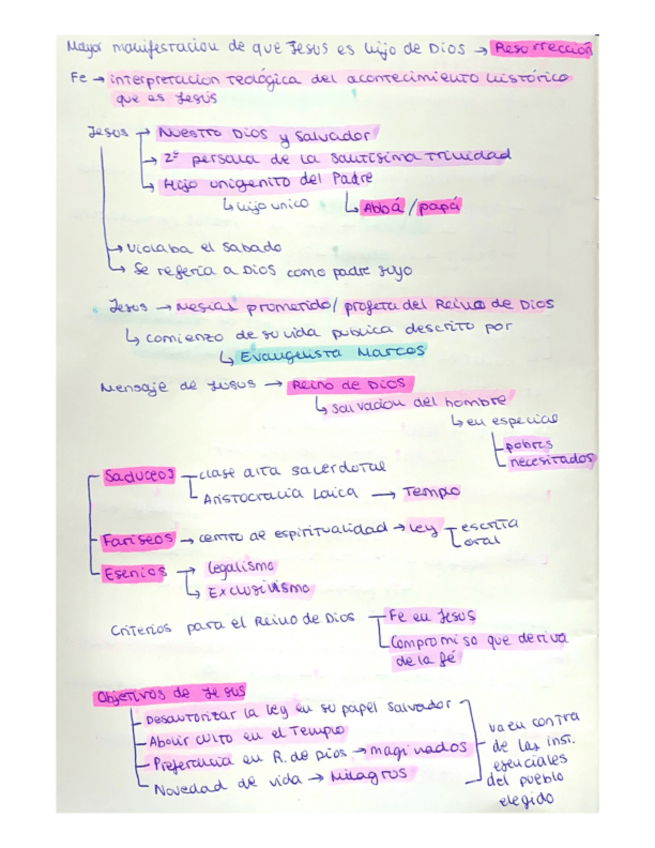 Mayor manifestacion de que Jesus es hijo de Dios → Resurrección
Fe → interpretacion teológica del acontecimiento histórico
que es Jesús
Jesus → Nuestro Dios y salvador
→ 2ª persona de la Santísima Trinidad
↳ Hijo unigenito del Padre
↳ hijo unico ↳ Abbá / papá
→ violaba el sabado
↳ Se referia a Dios como padre suyo
Jesus → Mesias prometido / profeta del Reino de Dios
↳ comienzo de su vida publica descrito por
↳ Evangelista Marcos
Mensaje de Jesus → Reino de Dios
↳ salvacion del hombre
↳ en especial
pobres
necesitados
Saduceos clase alta sacerdotal
Aristocracia Laica → Templo
Fariseos → centro de espiritualidad → Ley escrita
oral
Esenios → legalismo
↳ Exclusivismo
Criterios para el Reino de Dios Fe en Jesus
Compromiso que deriva
de la fé
Objetivos de Jesus
Desautorizar la Ley en su papel salvador
Abolir culto en el Templo
Preferencia en R. de Dios → maginados
Novedad de vida → Milagros
va en contra
de las inst.
esenciales
del pueblo
elegido